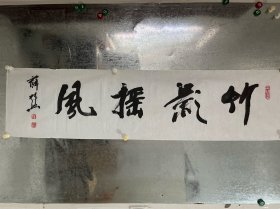 竹影摇風